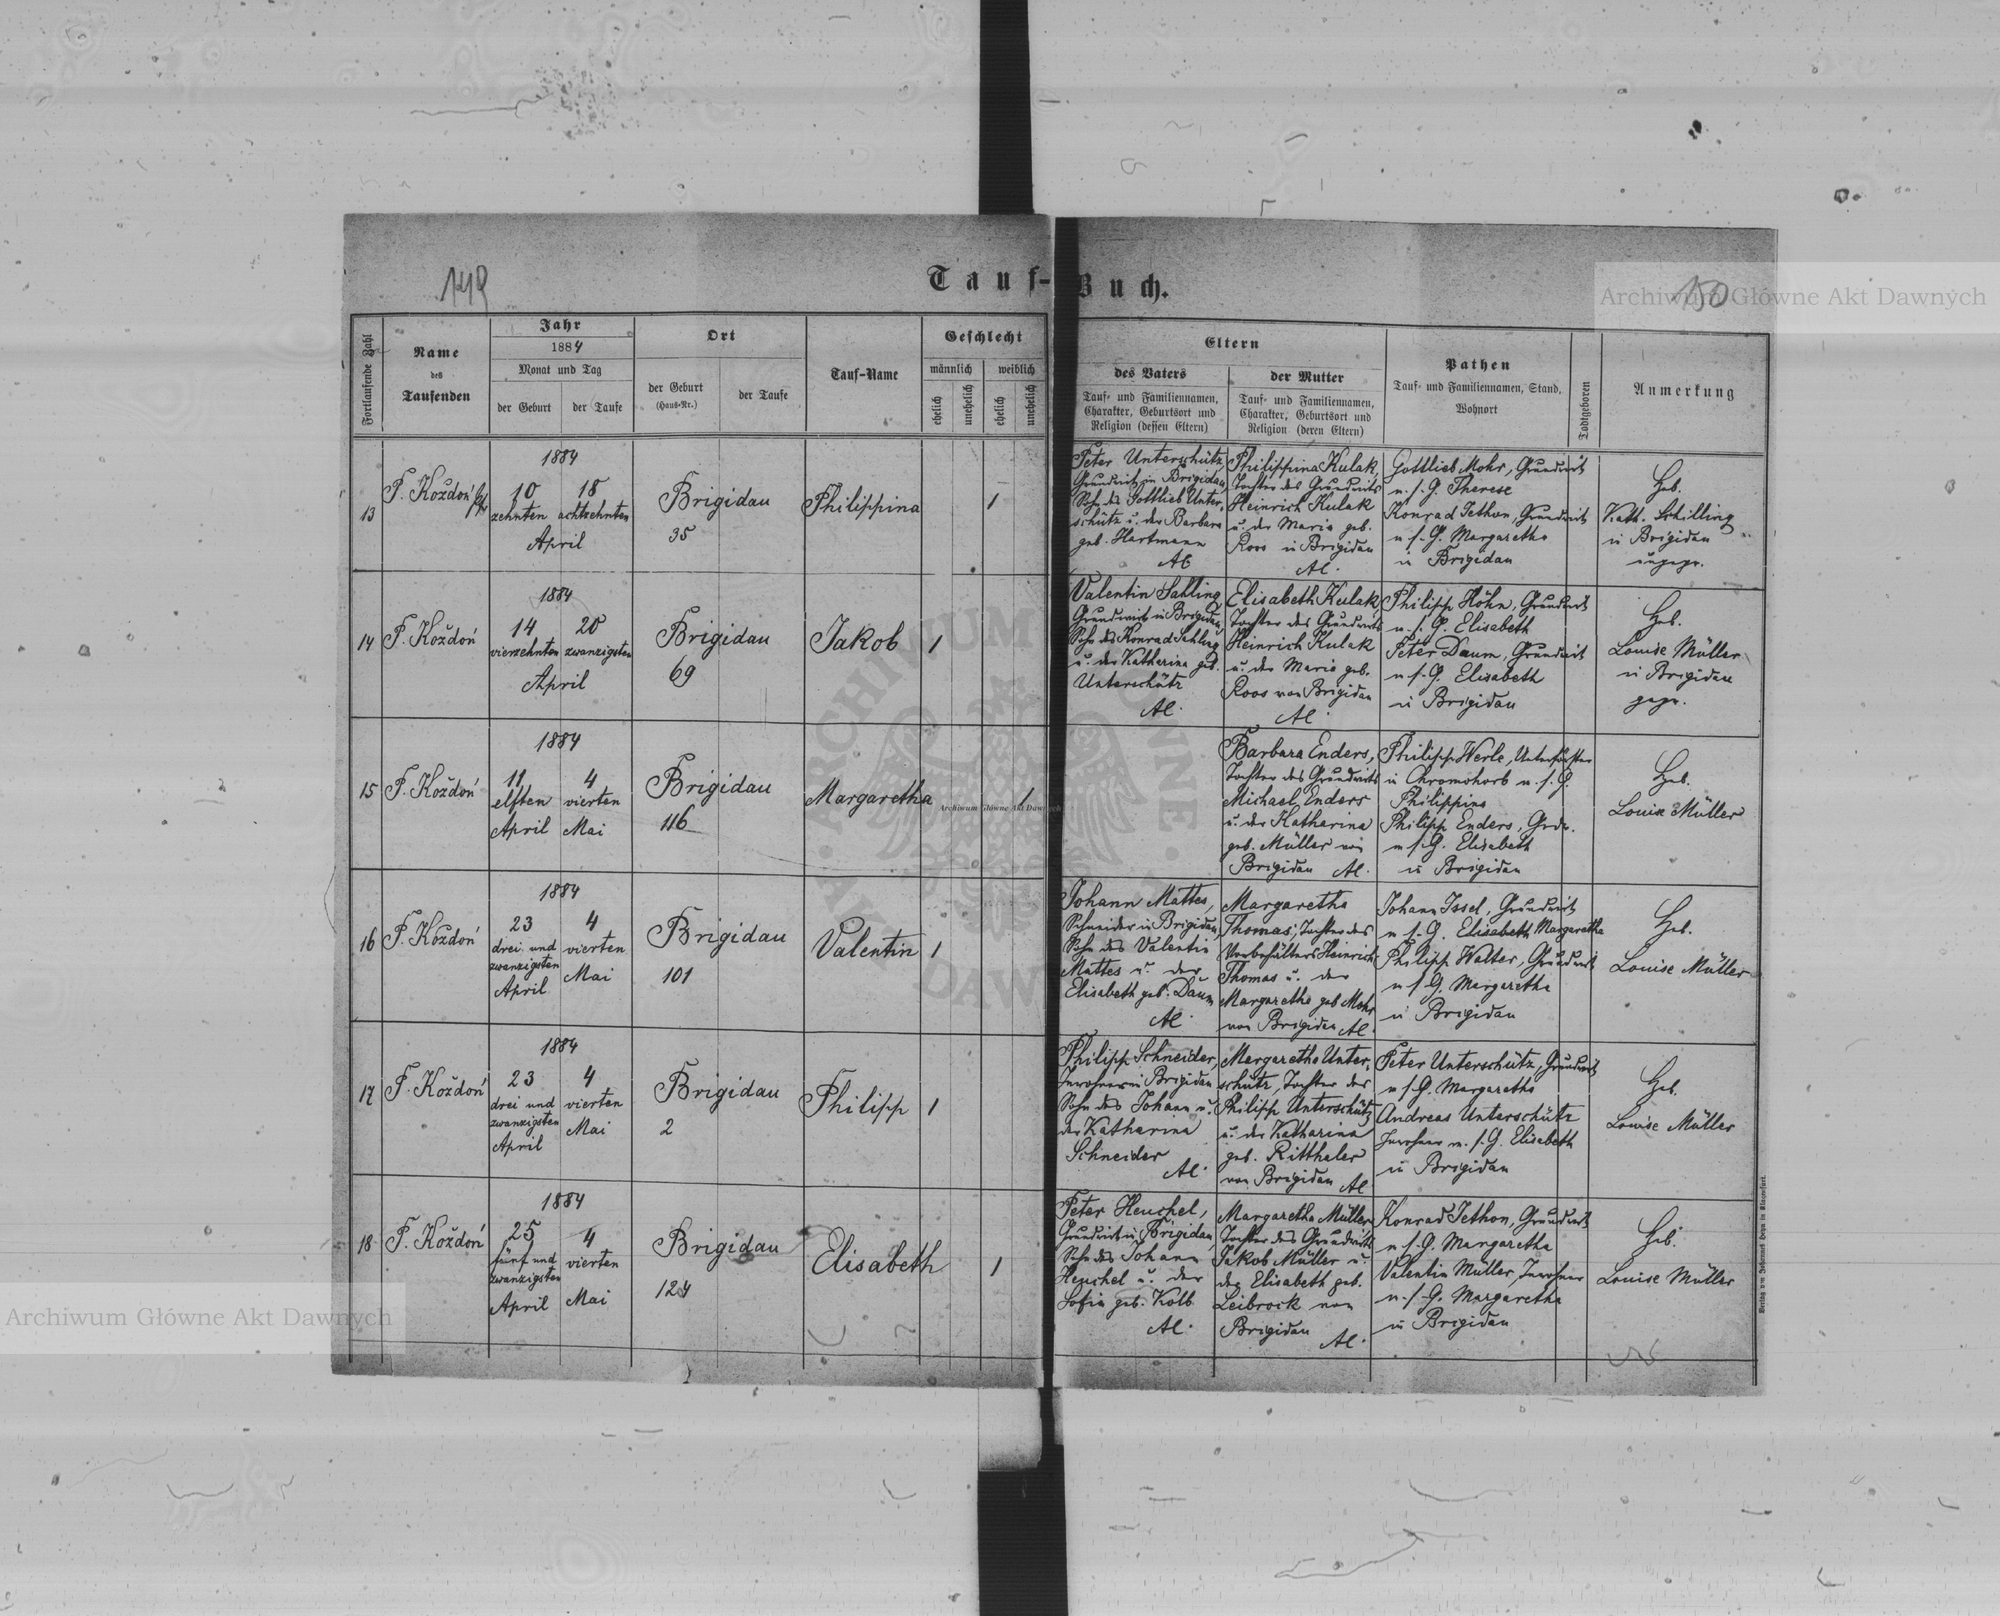 149
Tauf-Buch.
150
Archiwum Główne Akt Dawnych
Fortlaufende Zahl
Name
des
Taufenden
Jahr
1884
Monat und Tag
der Geburt
der Taufe
Ort
der Geburt
(Haus-Nr.)
der Taufe
Tauf-Name
Geschlecht
männlich
weiblich
ehelich
unehelich
ehelich
unehelich
Eltern
des Vaters
Tauf- und Familiennamen,
Charakter, Geburtsort und
Religion (dessen Eltern)
der Mutter
Tauf- und Familiennamen,
Charakter, Geburtsort und
Religion (deren Eltern)
Pathen
Tauf- und Familiennamen, Stand,
Wohnort
Todtgeboren
Anmerkung
13
F. Koždoń
1884
10
zehnten
18
achtzehnten
April
Brigidau
35
Philippina
1
Peter Unterschütz
Grundwirt in Brigidau,
Sohn des Gottlieb Unter-
schütz u. der Barbara
geb. Hartmann
AC
Philippina Kulak,
Tochter des Grundwirts
Heinrich Kulak
u. der Maria geb.
Roos in Brigidau
AC.
Gottlieb Mohr, Grundwirt
u. s. G. Therese
Konrad Jethon, Grundwirt
u. s. G. Margaretha
in Brigidau
Heb.
Kath. Schilling
in Brigidau
ungepr.
14
F. Koždoń
1884
14
vierzehnten
20
zwanzigsten
April
Brigidau
69
Jakob
1
Valentin Sahling
Grundwirt in Brigidau,
Sohn des Konrad Sahling
u. der Katharina geb.
Unterschütz
AC.
Elisabeth Kulak,
Tochter des Grundwirts
Heinrich Kulak
u. der Maria geb.
Roos von Brigidau
AC.
Philipp Höhn, Grundwirt
u. s. G. Elisabeth
Peter Daum, Grundwirt
u. s. G. Elisabeth
in Brigidau
Heb.
Louise Müller
in Brigidau
gepr.
15
F. Koždoń
1884
11
elften
April
4
vierten
Mai
Brigidau
116
Margaretha
1
Archiwum Główne Akt Dawnych
Barbara Enders,
Tochter des Grundwirts
Michael Enders
u. der Katharina
geb. Müller von
Brigidau AC.
Philipp Werle, Unterförster
in Chromohorb u. s. G.
Philippina
Philipp Enders, Grdw.
u. s. G. Elisabeth
in Brigidau
Heb.
Louise Müller
16
F. Koždoń
1884
23
drei und
zwanzigsten
April
4
vierten
Mai
Brigidau
101
Valentin
1
Johann Mattes,
Schneider in Brigidau,
Sohn des Valentin
Mattes u. der
Elisabeth geb. Daum
AC.
Margaretha
Thomas, Tochter des
Vorbehälters Heinrich
Thomas u. der
Margaretha geb Mohr
von Brigidau AC.
Johann Issel, Grundwirt
u. s. G. Elisabeth Margaretha
Philipp Walter, Grundwirt
u. s. G. Margaretha
in Brigidau
Heb.
Louise Müller
17
F. Koždoń
1884
23
drei und
zwanzigsten
April
4
vierten
Mai
Brigidau
2
Philipp
1
Philipp Schneider,
Inwohner in Brigidau
Sohn des Johann u.
der Katharina
Schneider
AC.
Margaretha Unter-
schütz, Tochter des
Philipp Unterschütz
u. der Katharina
geb. Ritthaler
von Brigidau AC.
Peter Unterschütz, Grundwirt
u. s. G. Margaretha
Andreas Unterschütz
Inwohner u. s. G. Elisabeth
in Brigidau
Heb.
Louise Müller
18
F. Koždoń
1884
25
fünf und
zwanzigsten
April
4
vierten
Mai
Brigidau
124
Elisabeth
1
Peter Henschel,
Grundwirt in Brigidau,
Sohn des Johann
Henschel u. der
Sofia geb. Kolb
AC.
Margaretha Müller
Tochter des Grundwirts
Jakob Müller u.
der Elisabeth geb.
Leibrock von
Brigidau
AC.
Konrad Jethon, Grundwirt
u. s. G. Margaretha
Valentin Müller, Inwohner
u. s. G. Margaretha
in Brigidau
Heb.
Louise Müller
Archiwum Główne Akt Dawnych